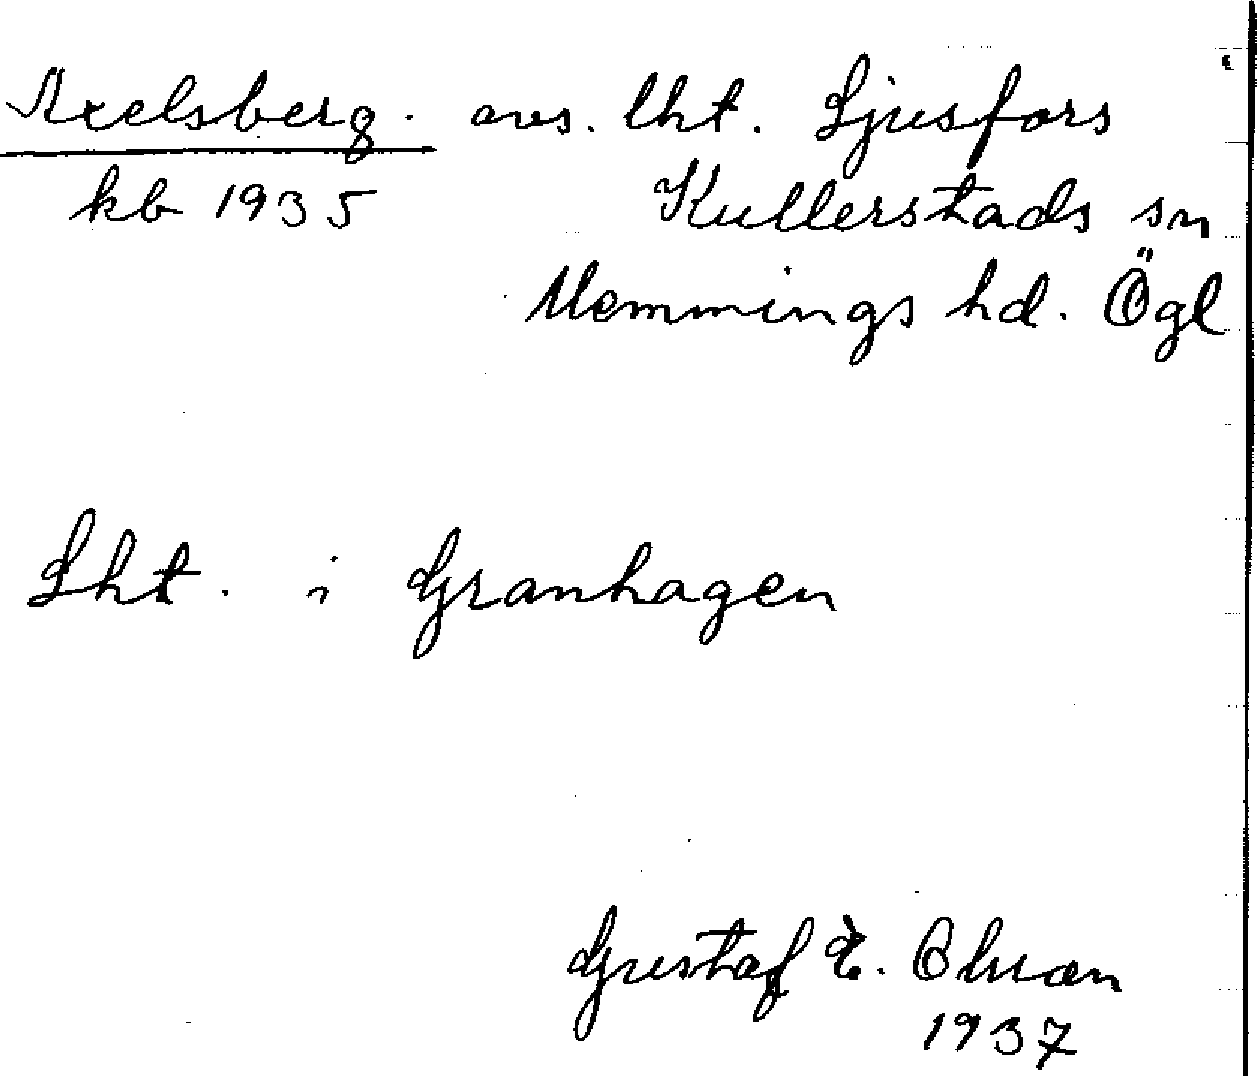 Axelsberg. avs. lht. Ljusfors
kb 1935 Kullerstads sn
Memmings hd. Ögl
Lht. i Granhagen
Gustaf E. Olman
1937